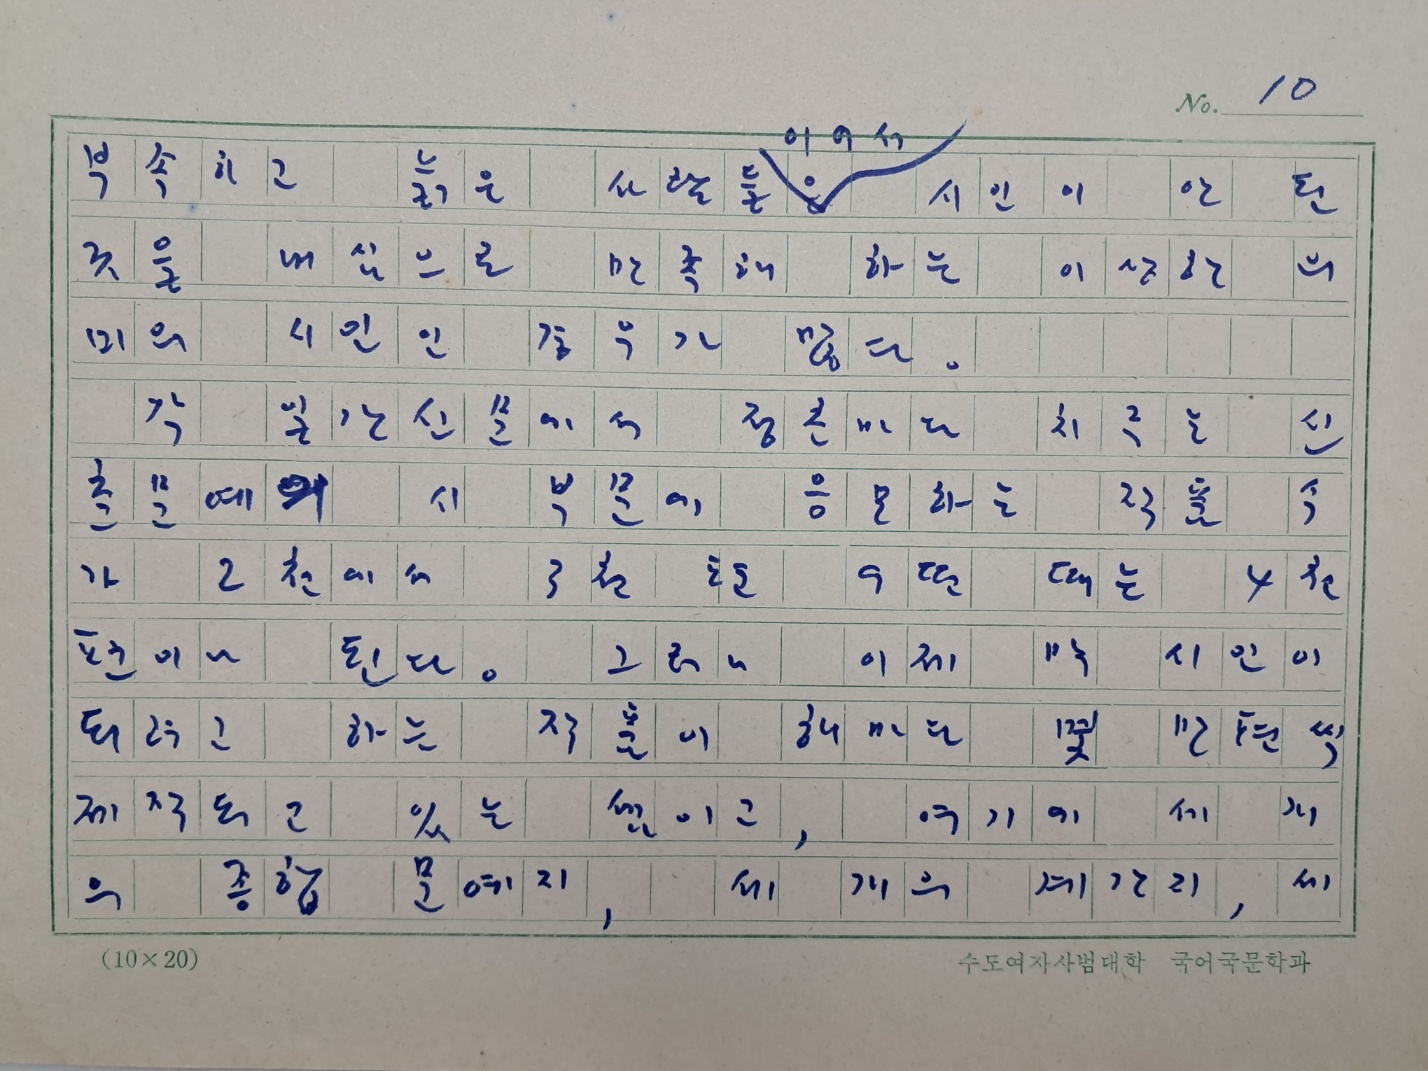 No. 10
이어서
부족하고 늙은 사람들은 시인이 안 된
것을 내심으로 만족해 하는 이상한 의
미의 시인인 경우가 많다.
각 일간신문에서 정초마다 치르는 신
춘문예 시 부문에 응모하는 작품 수
가 2천에서 3천 편 어떤 때는 4천
편이나 된다. 그러나 이제 막 시인이
되려고 하는 작품이 해마다 몇 만편씩
제작되고 있는 셈이고, 여기에 세 개
의 종합 문예지, 세 개의 계간지, 세
(10×20)
수도여자사범대학 국어국문학과